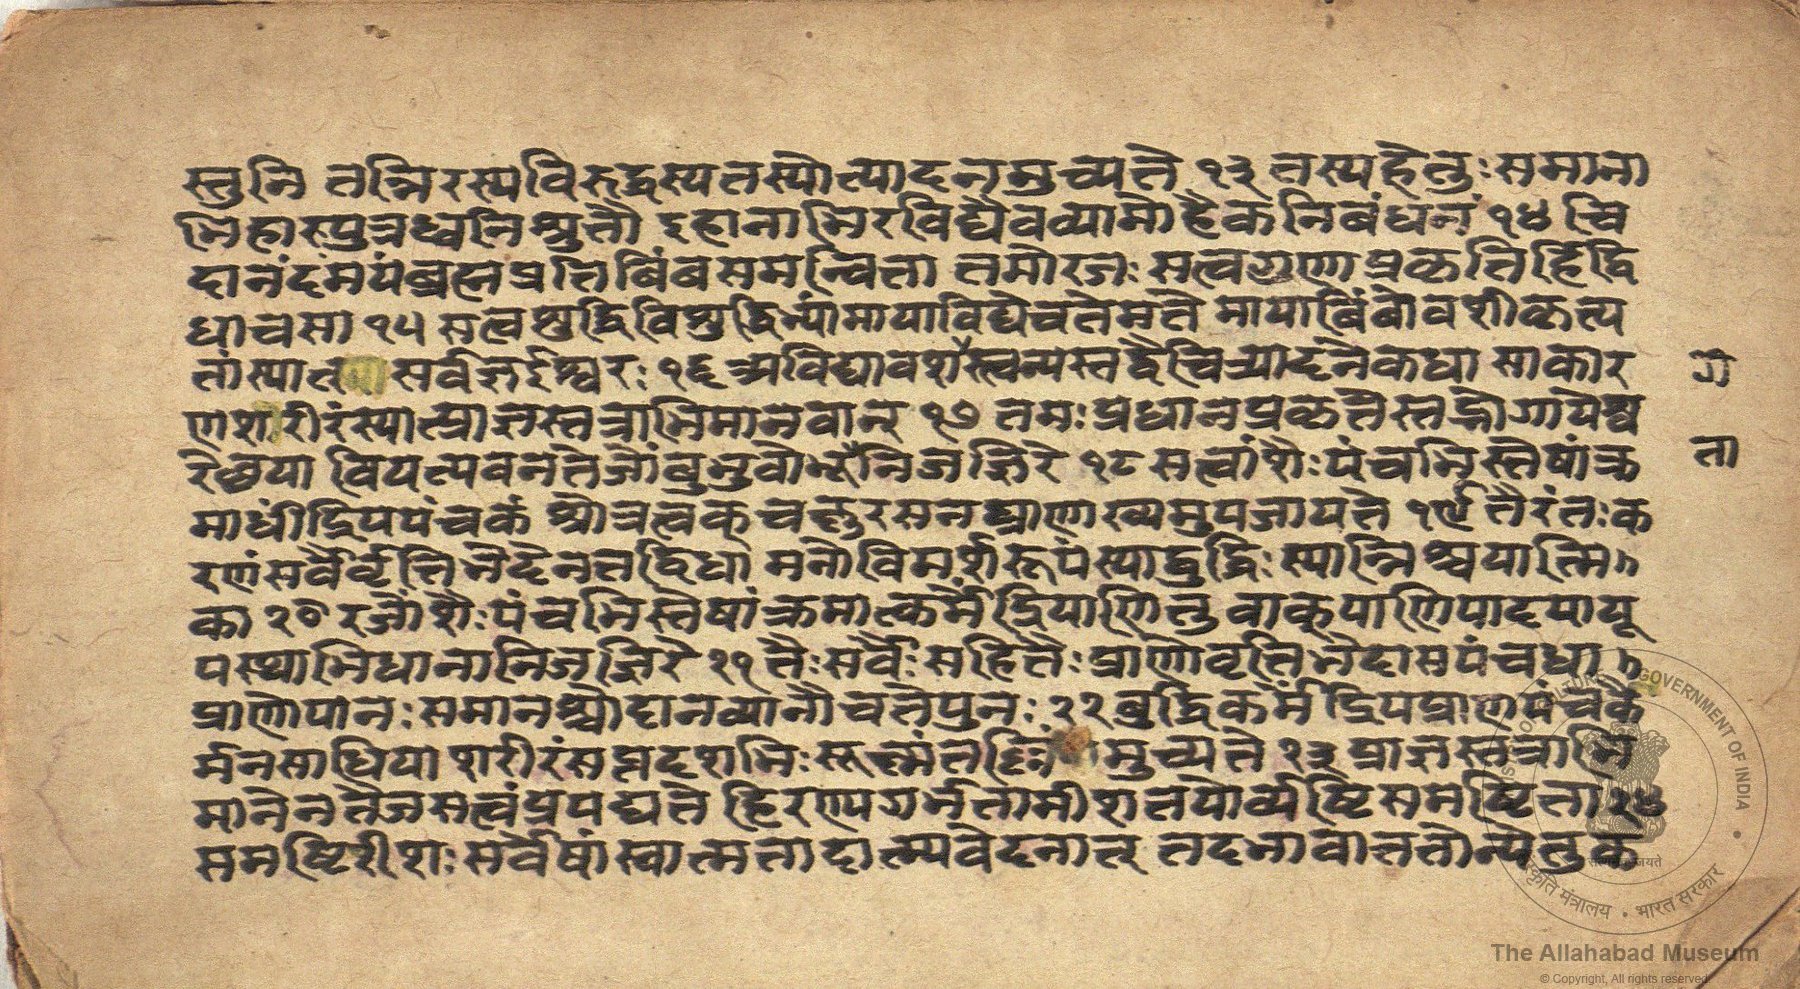 स्तुनि तन्निरस्यविरुद्धस्यतस्योत्पादनमुच्यते १३ तस्यहेतुः समाना
भिहारपुत्रध्वनिश्रुतौ इहानाभिरविद्यैवव्यामोहैकनिबंधनं १४ चि
दानंदमयंब्रह्मप्रतिबिंबसमन्विता तमोरजः सत्वगुणाप्रकृतिर्द्वि
धाचसा १५ सत्वशुद्धिविशुद्धिभ्यांमायाविद्येचतेमते मायाबिंबोवशीकृत्य
तांस्यात् सर्वज्ञईश्वरः १६ अविद्यावशस्त्वन्यस्तद्वैचित्र्यादनेकधा साकार
णशरीरंस्यात्प्राज्ञस्तत्राभिमानवान् १७ तमः प्रधानप्रकृतेस्तद्भोगायेश्व
रेछया वियत्पवनतेजोंबुभुवोभूनिजज्ञिरे १८ सत्वांशैः पंचभिस्तेषांक्र
माधींद्रियपंचकं श्रोत्रत्वक्चक्षुरसनघ्राणाख्यमुपजायते १९ तैरंतःक
रणंसर्वैर्वृत्तिभेदेनतद्विधा मनोविमर्शरूपंस्याद्बुद्धिः स्यान्निश्चयात्मि॥
का २० रजोंशैः पंचभिस्तेषांक्रमात्कर्मेंद्रियाणितु वाक्पाणिपादपायू
पस्थाभिधानानिजज्ञिरे २१ तैः सर्वैः सहितैः प्राणोवृत्तिभेदासपंचधा॥
प्राणोपानः समानश्चोदानव्यानौचतेपुनः २२ बुद्धिकर्मेंद्रियप्राणपंचकै
र्मनसाधिया शरीरंसप्तदशभिः सूक्ष्मंतल्लिंग मुच्यते २३ प्राज्ञस्तत्राभि
मानेनतैजसत्वंप्रपद्यते हिरण्यगर्भतामीशतयोर्व्यष्टिसमष्टिता २४
समष्टिरीशः सर्वेषांस्वात्मतादात्म्यवेदनात् तदभावात्ततोन्येतुक
ता
The Allahabad Museum
© Copyright, All rights reserved.
GOVERNMENT OF INDIA
संस्कृति मंत्रालय • भारत सरकार